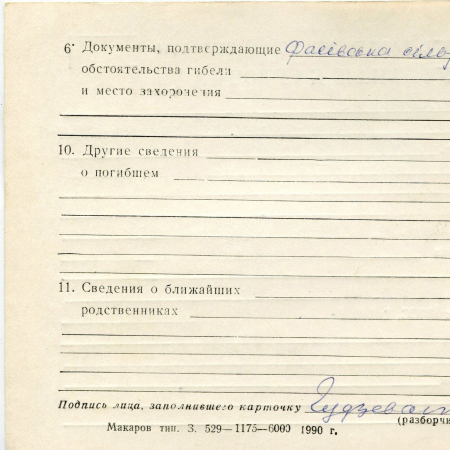 6. Документы, подтверждающие Фасівська сіль
обстоятельства гибели
и место захоронения
10. Другие сведения
о погибшем
11. Сведения о ближайших
родственниках
Подпись лица, заполнившего карточку
(разборчи
Макаров тип. З. 529—1175—6000 1990 г.